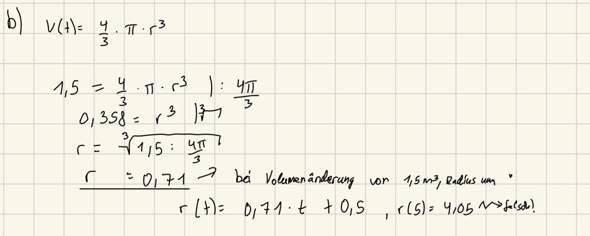 b) V(t) = 4/3 · π · r³
1,5 = 4/3 · π · r³ | : 4π/3
0,358 = r³ | ∛
r = ∛(1,5 : 4π/3)
r = 0,71 → bei Volumenänderung von 1,5 m³, Radius um "
r(t) = 0,71 · t + 0,5 , r(5) = 4,05 → falsch!